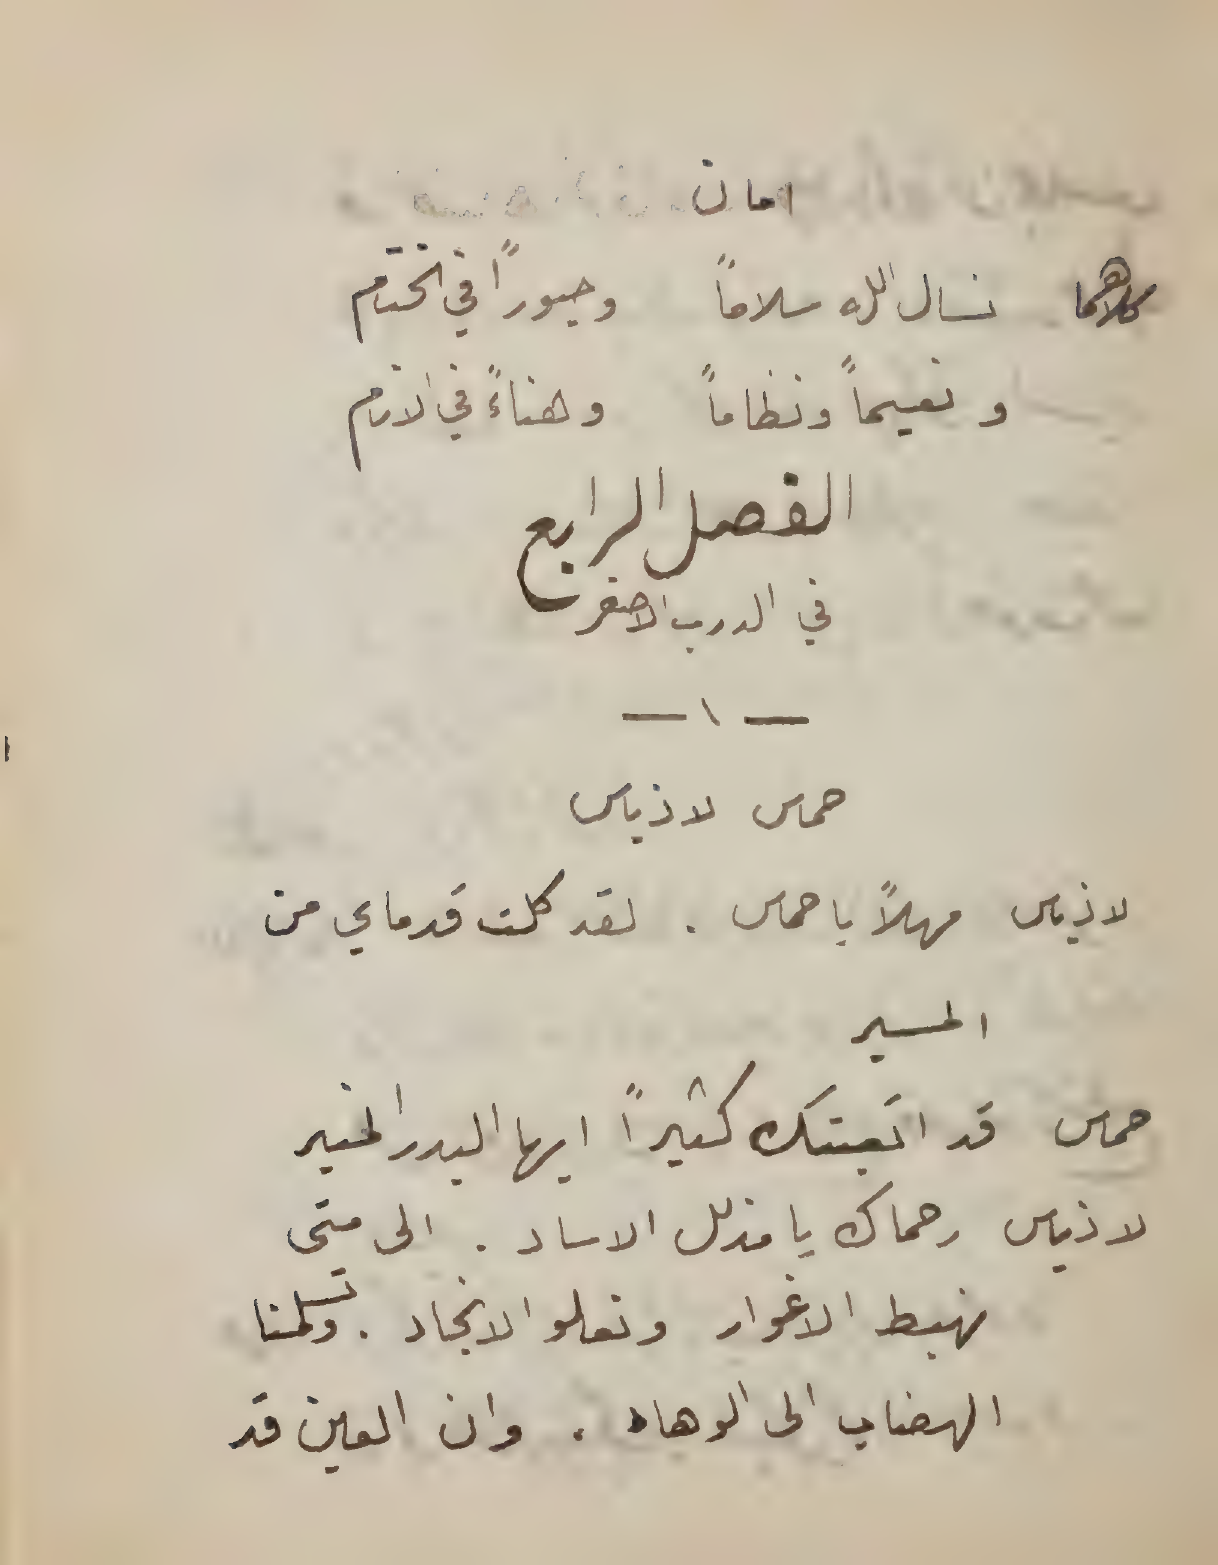 امان
كلاهما نسال الله سلاماً وحبوراً في الختام
ونعيماً ونظاماً وهناءً في الازم
الفصل الرابع
في الدرب الاصغر
— ١ —
حماس لاذياس
لاذياس مهلاً يا حماس . لقد كلت قدماي من
المسير
حماس قد اتعبتك كثيراً ايها البدر المنير
لاذياس رحماك يا مذلل الاساد . الى متى
نهبط الاغوار ونعلو الانجاد . وتسلمنا
الهضاب الى الوهاد . وان العين قد